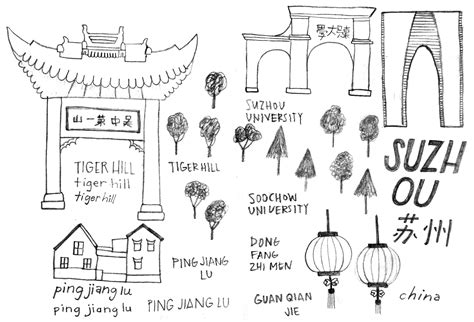 吳中第一山
TIGER HILL
tiger hill
tiger hill
TIGER HILL
SUZHOU
UNIVERSITY
SOOCHOW
UNIVERSITY
SUZH
OU
苏州
china
PING JIANG
LU
ping jiang lu
ping jiang lu
PING JIANG LU
DONG
FANG
ZHI MEN
GUAN QIAN
JIE